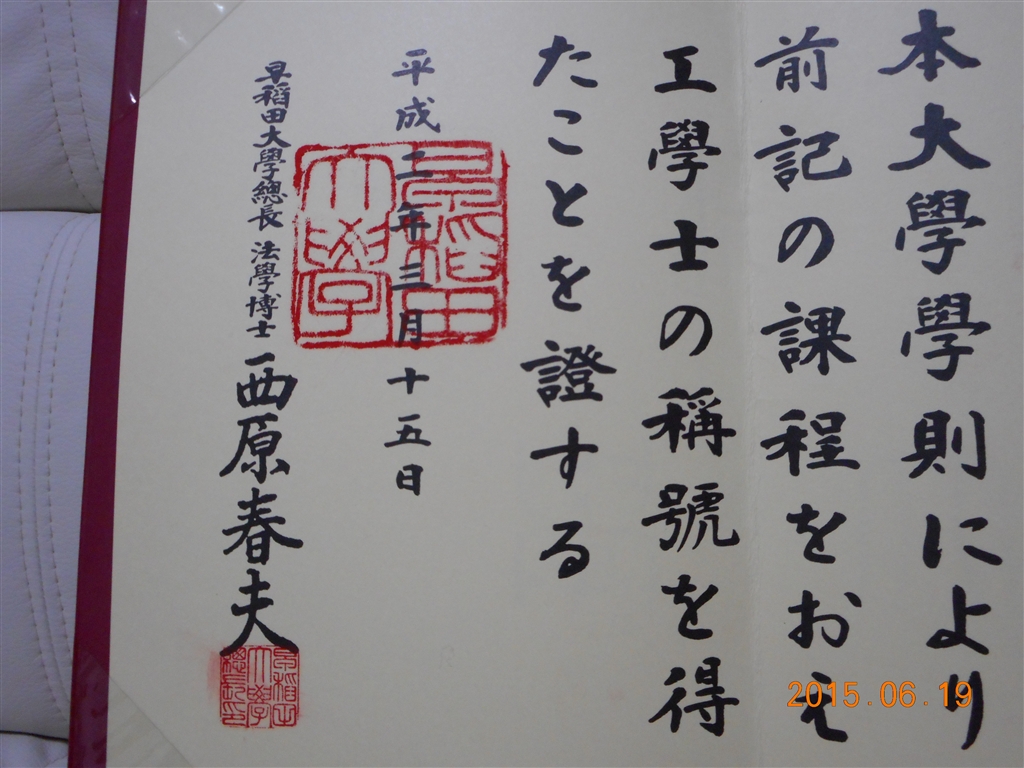 本大學學則により
前記の課程をおえ
工學士の稱號を得
たことを證する
平成二年三月十五日
早稲田大學總長 法學博士 西原春夫
早稲田大學
早稲田大學總長印
2015.06.19